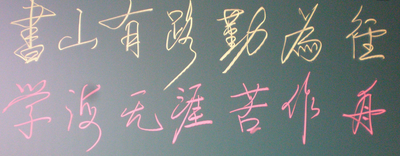 書山有路勤為徑
学海无涯苦作舟